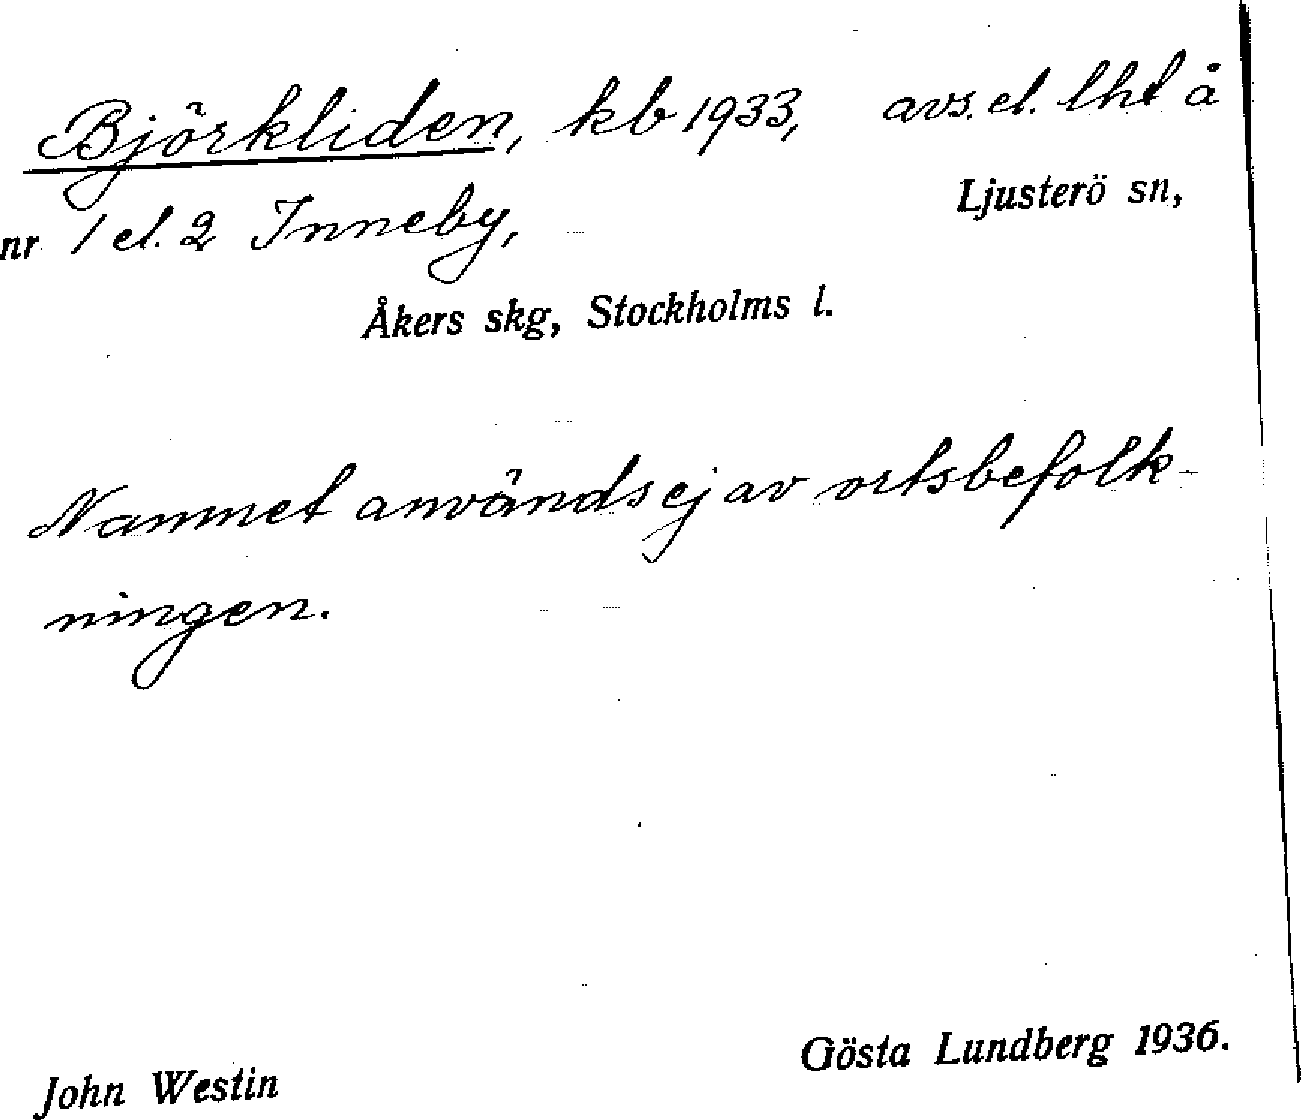 Björkliden, kb 1933, avs. el. lht å
nr 1 el. 2 Inneby, Ljusterö sn,
Åkers skg, Stockholms l.
Namnet används ej av ortsbefolk-
ningen.
John Westin Gösta Lundberg 1936.